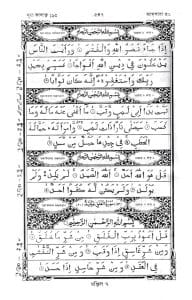 إِذَا جَآءَ نَصْرُ اللّٰهِ وَالْفَتْحُ ۝ وَرَاَيْتَ النَّاسَ
يَدْخُلُوْنَ فِيْ دِيْنِ اللّٰهِ اَفْوَاجًا ۝ فَسَبِّحْ بِحَمْدِ
رَبِّكَ وَاسْتَغْفِرْهُ اِنَّهٗ كَانَ تَوَّابًا ۝
بِسْمِ اللّٰهِ الرَّحْمٰنِ الرَّحِيْمِ
تَبَّتْ يَدَآ اَبِيْ لَهَبٍ وَّتَبَّ ۝ مَآ اَغْنٰى عَنْهُ مَالُهٗ وَمَا
كَسَبَ ۝ سَيَصْلٰى نَارًا ذَاتَ لَهَبٍ ۝ وَّامْرَاَتُهٗ حَمَّالَةَ
الْحَطَبِ ۝ فِيْ جِيْدِهَا حَبْلٌ مِّنْ مَّسَدٍ ۝
بِسْمِ اللّٰهِ الرَّحْمٰنِ الرَّحِيْمِ
قُلْ هُوَ اللّٰهُ اَحَدٌ ۝ اَللّٰهُ الصَّمَدُ ۝ لَمْ يَلِدْ وَلَمْ
يُوْلَدْ ۝ وَلَمْ يَكُنْ لَّهٗ كُفُوًا اَحَدٌ ۝
بِسْمِ اللّٰهِ الرَّحْمٰنِ الرَّحِيْمِ
قُلْ اَعُوْذُ بِرَبِّ الْفَلَقِ ۝ مِنْ شَرِّ مَا خَلَقَ ۝
وَمِنْ شَرِّ غَاسِقٍ اِذَا وَقَبَ ۝ وَمِنْ شَرِّ النَّفّٰثٰتِ
فِي الْعُقَدِ ۝ وَمِنْ شَرِّ حَاسِدٍ اِذَا حَسَدَ ۝